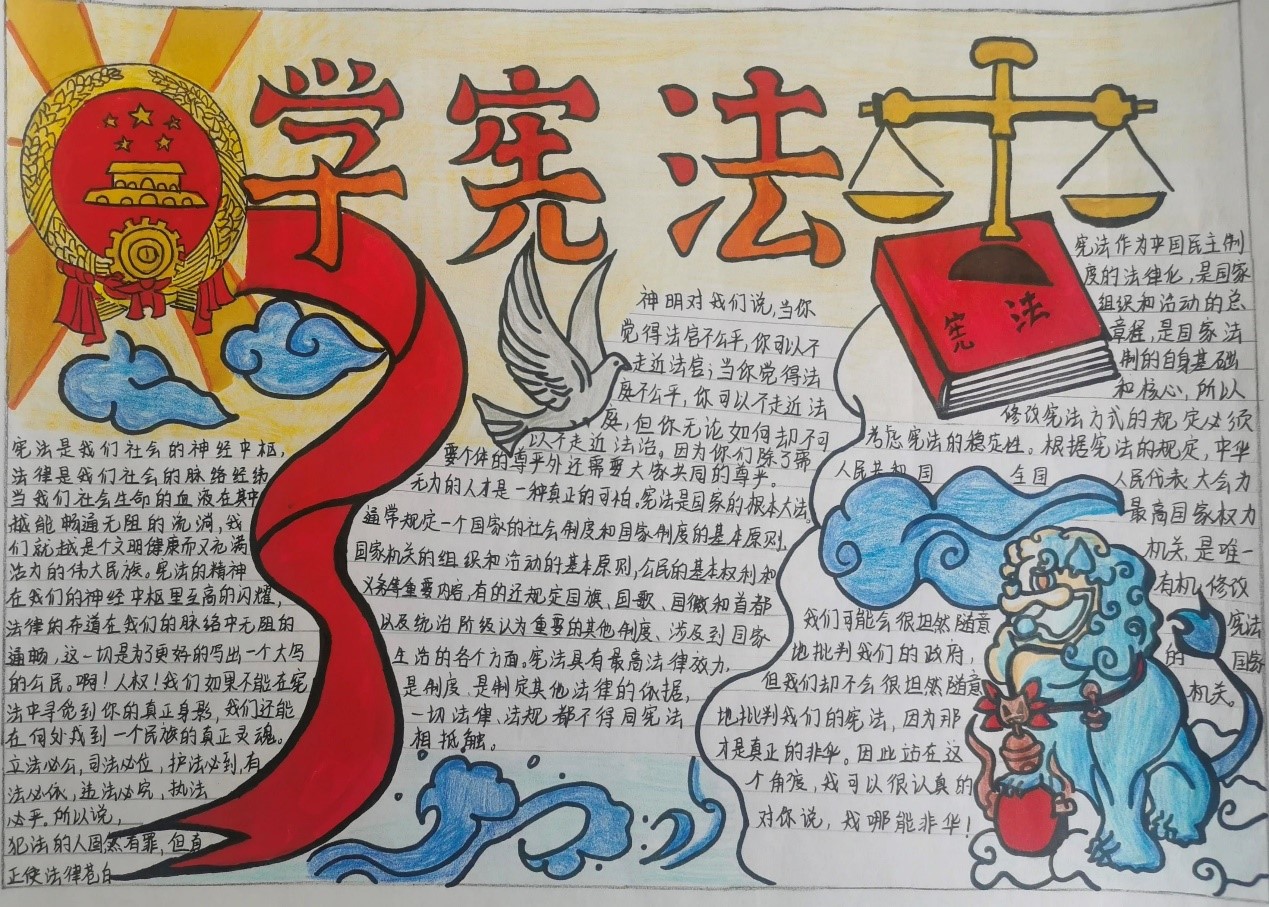 学宪法
宪法
宪法是我们社会的神经中枢,
法律是我们社会的脉络经纬
当我们社会生命的血液在其中
越能畅通无阻的流淌,我
们就越是个文明健康而又充满
活力的伟大民族。宪法的精神
在我们的神经中枢里至高的闪耀,
法律的布道在我们的脉络中无阻的
通畅,这一切是为了更好的写出一个大写
的公民。啊!人权!我们如果不能在宪
法中寻觅到你的真正身影,我们还能
在何处找到一个民族的真正灵魂。
立法必公,司法必位,护法必到,有
法必依,违法必究,执法
必平。所以说,
犯法的人固然有罪,但真
正使法律苍白
神明对我们说,当你
觉得法官不公平,你可以不
走近法官;当你觉得法
庭不公平,你可以不走近法
庭,但你无论如何却不可
以不走近法治。因为你们除了需
要个体的尊严外还需要大家共同的尊严。
无力的人才是一种真正的可怕。宪法是国家的根本大法。
通常规定一个国家的社会制度和国家制度的基本原则
国家机关的组织和活动的基本原则,公民的基本权利和
义务等重要内容,有的还规定国旗、国歌、国徽和首都
以及统治阶级认为重要的其他制度、涉及到国家
生活的各个方面。宪法具有最高法律效力,
是制度、是制定其他法律的依据,
一切法律、法规都不得同宪法
相抵触。
宪法作为中国民主制
度的法律化,是国家
组织和活动的总
章程,是国家法
制的自身基础
和核心,所以
修改宪法方式的规定必须
考虑宪法的稳定性。根据宪法的规定,中华
人民共和国 全国 人民代表大会力
最高国家权力
机关,是唯一
有机,修改
宪法
的 国家
机关。
我们可能会很坦然随意
地批判我们的政府,
但我们却不会很坦然随意
地批判我们的宪法,因为那
才是真正的非华。因此站在这
个角度,我可以很认真的
对你说,我哪能非华!